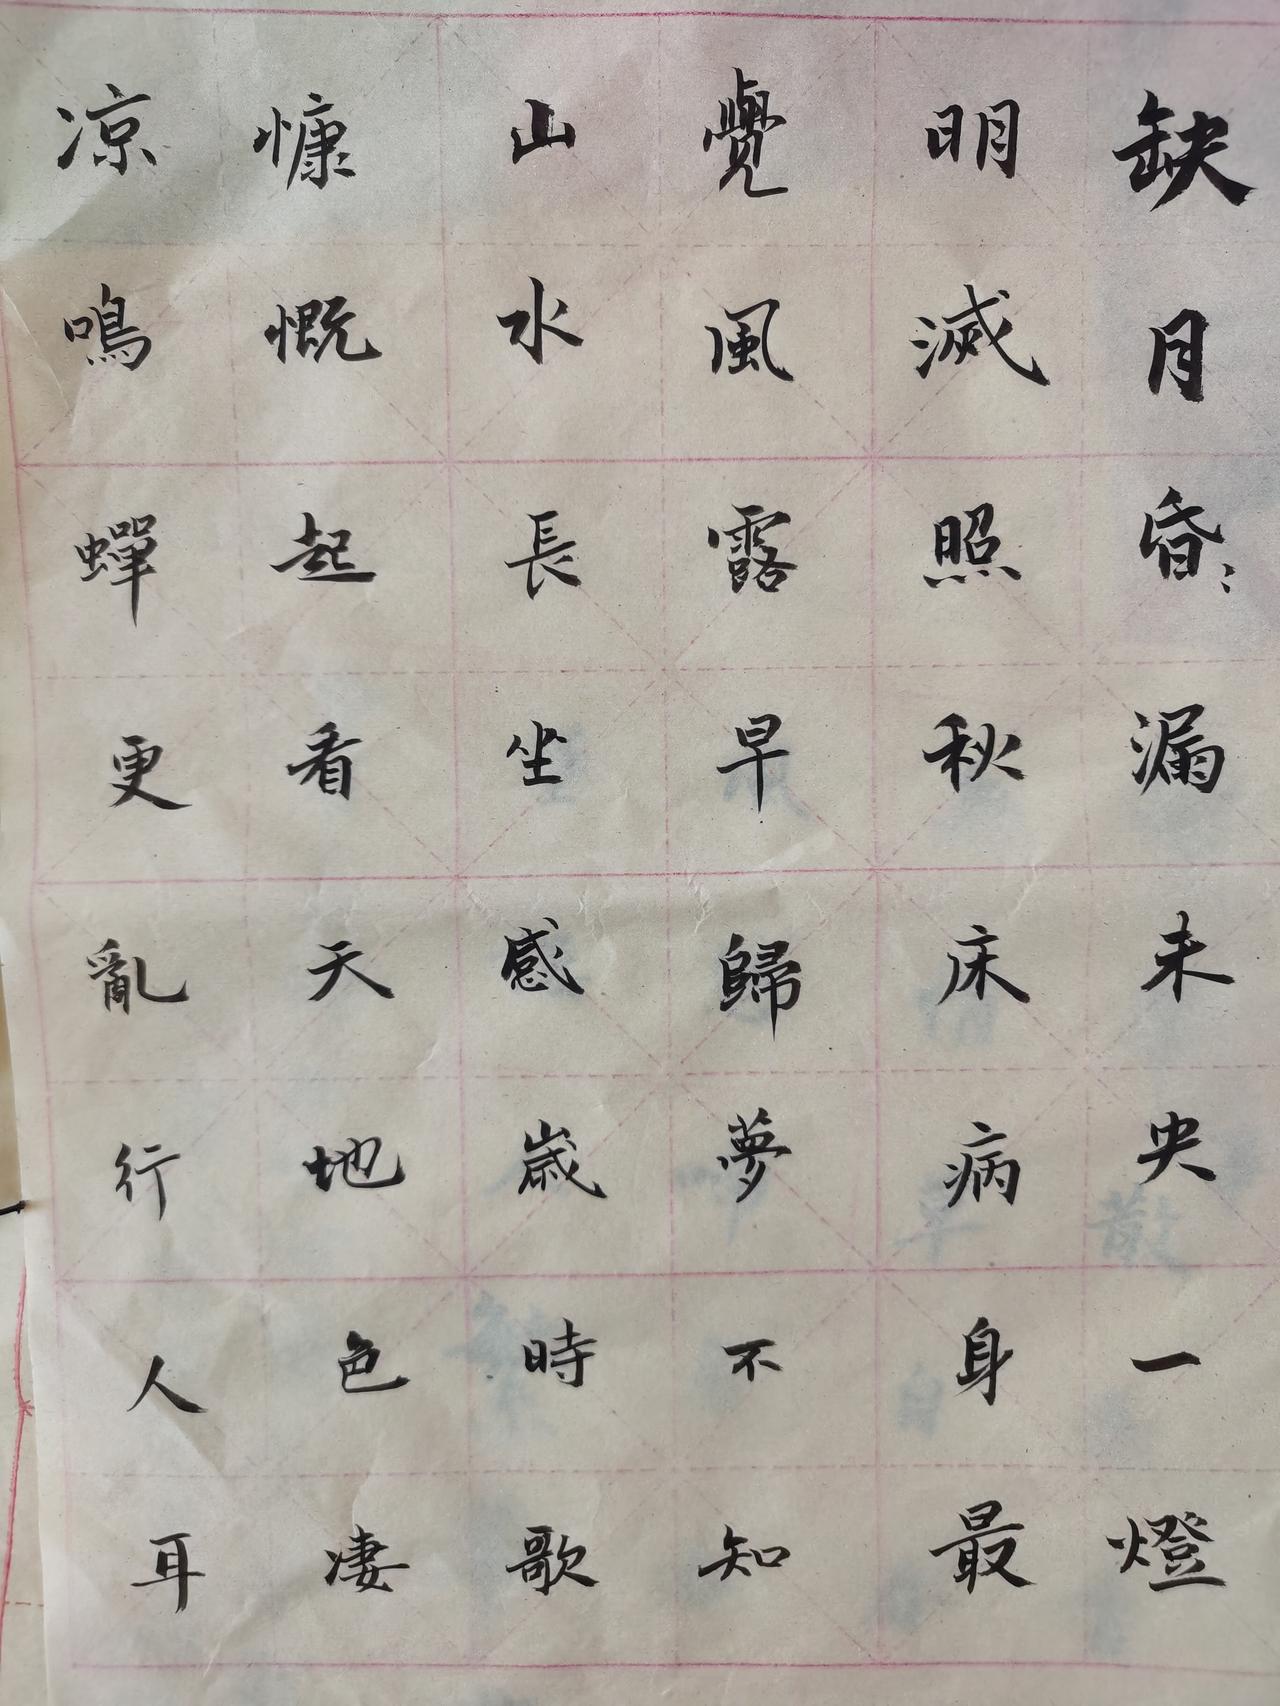 缺月昏:漏未央一燈
明滅照秋床病身最
覺風露早歸夢不知
山水長坐感歲時歌
慷慨起看天地色凄
凉鳴蟬更亂行人耳